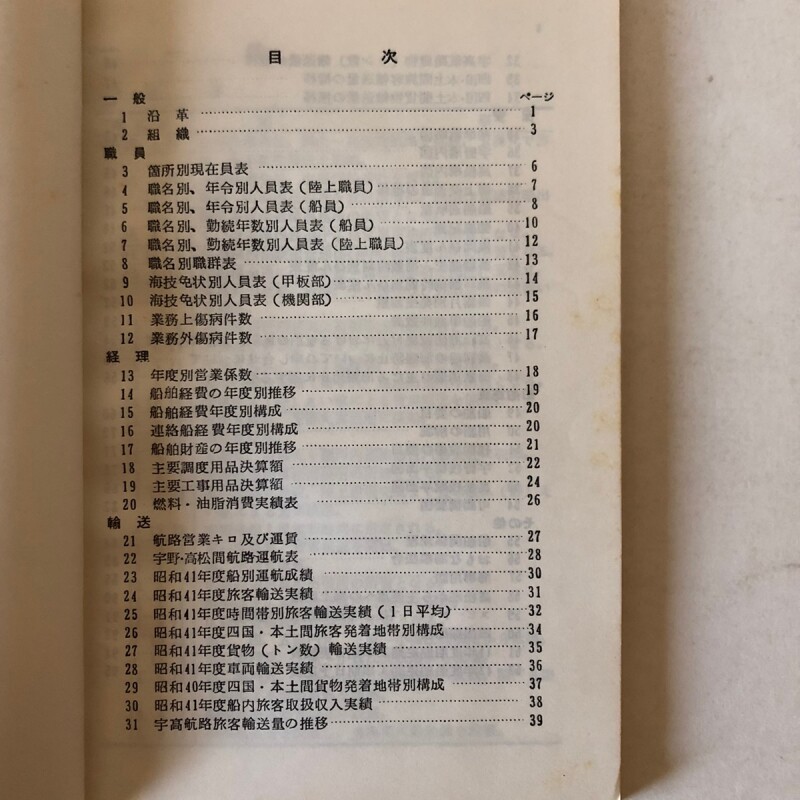 目 次
一 般 ページ
1 沿 革 1
2 組 織 3
職 員
3 箇所別現在員表 6
4 職名別、年令別人員表(陸上職員) 7
5 職名別、年令別人員表(船員) 8
6 職名別、勤続年数別人員表(船員) 10
7 職名別、勤続年数別人員表(陸上職員) 12
8 職名別職群表 13
9 海技免状別人員表(甲板部) 14
10 海技免状別人員表(機関部) 15
11 業務上傷病件数 16
12 業務外傷病件数 17
経 理
13 年度別営業係数 18
14 船舶経費の年度別推移 19
15 船舶経費年度別構成 20
16 連絡船経費年度別構成 20
17 船舶財産の年度別推移 21
18 主要調度用品決算額 22
19 主要工事用品決算額 24
20 燃料・油脂消費実績表 26
輸 送
21 航路営業キロ及び運賃 27
22 宇野・高松間航路運航表 28
23 昭和41年度船別運航成績 30
24 昭和41年度旅客輸送実績 31
25 昭和41年度時間帯別旅客輸送実績(1日平均) 32
26 昭和41年度四国・本土間旅客発着地帯別構成 34
27 昭和41年度貨物(トン数)輸送実績 35
28 昭和41年度車両輸送実績 36
29 昭和40年度四国・本土間貨物発着地帯別構成 37
30 昭和41年度船内旅客取扱収入実績 38
31 宇高航路旅客輸送量の推移 39